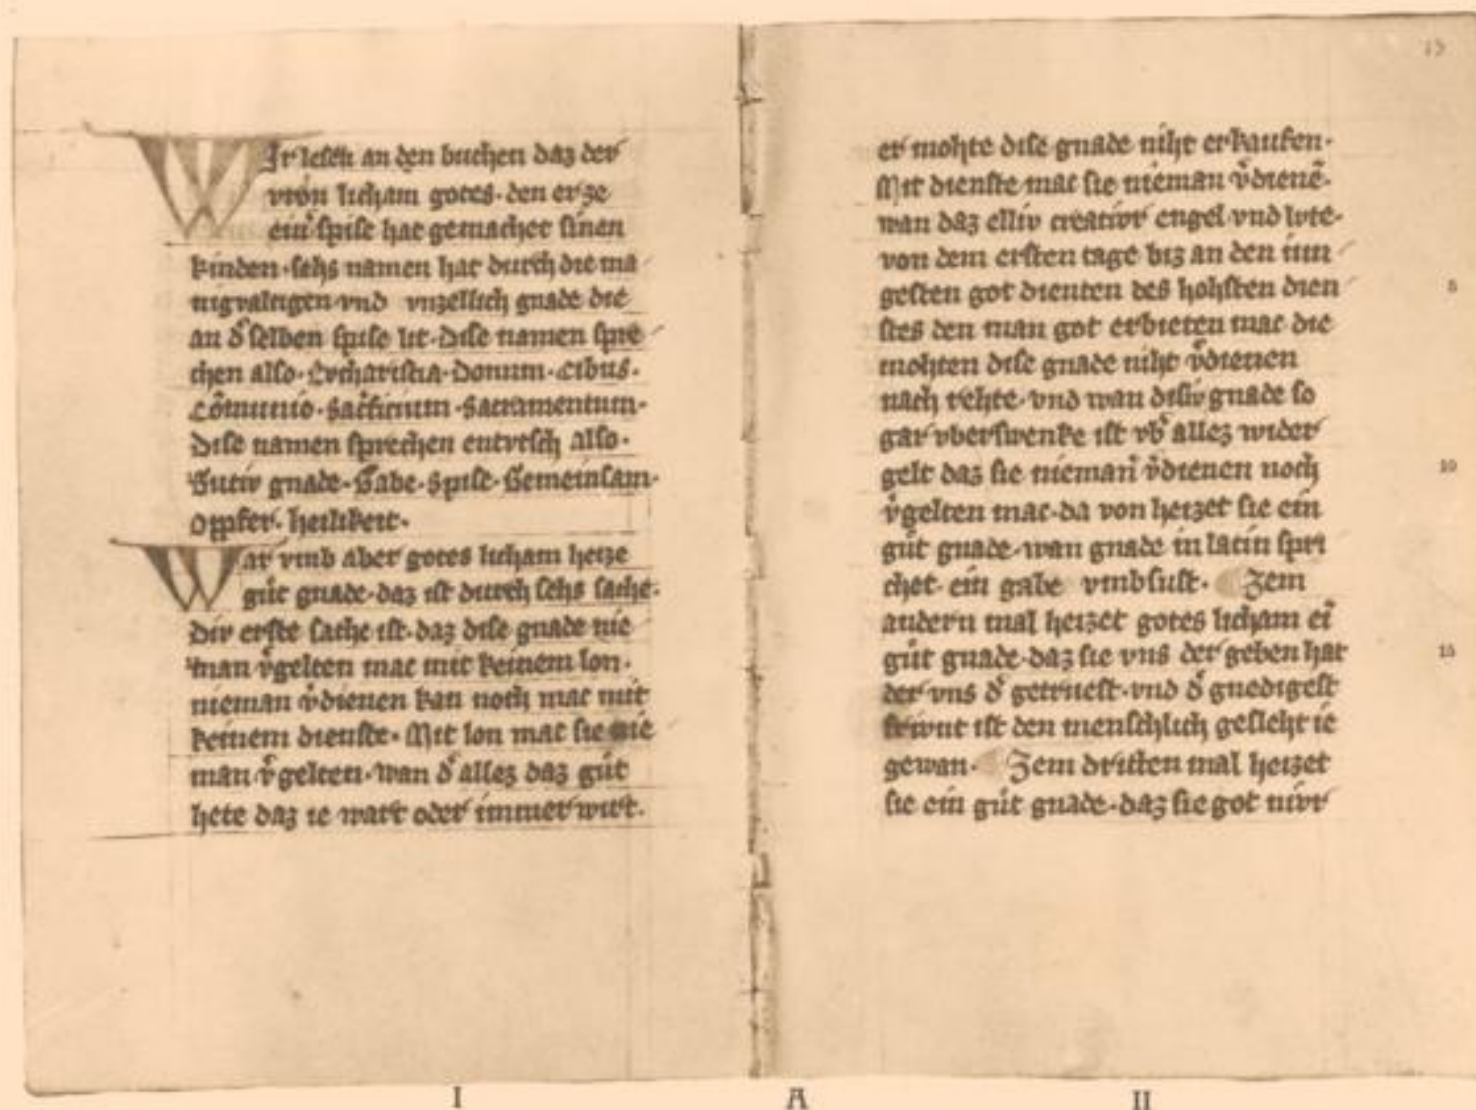 WIr lesen an den buchen daz der
vron licham gotes· den er ze
ein͛ spise hat gemachet sinen
kinden· sehs namen hat durch die ma
nigvaltigen vnd vnzellich gnade die
an d͛ selben spise lit· dise namen spre
chen also· Evcharistia· Donum· Cibus·
Cōmunio· Sac͛ficium· Sacramentum·
dise namen sprechen entvtsch also·
Gutiv gnade· Gabe· Spise· Gemeinsam·
Opfer· heilikeit·
War vmb aber gotes licham heize
gůt gnade· daz ist durch sehs sache·
Div erste sache ist· daz dise gnade nie
man v͛gelten mac mit keinem lon·
nieman v͛dienen kan noch mac mit
keinem dienste· Mit lon mac sie nie
man v͛gelten· wan d͛ allez daz gůt
hete daz ie wart oder immer wirt·
15
er mohte dise gnade niht erkaufen·
Mit dienste mac sie nieman v͛dienē·
wan daz elliv creativr engel vnd lvte·
von dem ersten tage biz an den iun
gesten got dienten des hohsten dien
5
stes den man got erbieten mac die
mohten dise gnade niht v͛dienen
nach rehte· vnd wan disiv gnade so
gar vberswenke ist vb͛ allez wider
gelt daz sie nieman v͛dienen noch
10
v͛gelten mac· da von heizet sie ein
gůt gnade· wan gnade in latin spri
chet· ein gabe vmbsust· Zem
andern mal heizet gotes licham ei͛
gůt gnade· daz sie vns der geben hat
15
der vns d͛ getriuest· vnd d͛ gnedigest
frivnt ist den menschlich gesleht ie
gewan· Zem dritten mal heizet
sie ein gůt gnade· daz sie got nivr
I A II